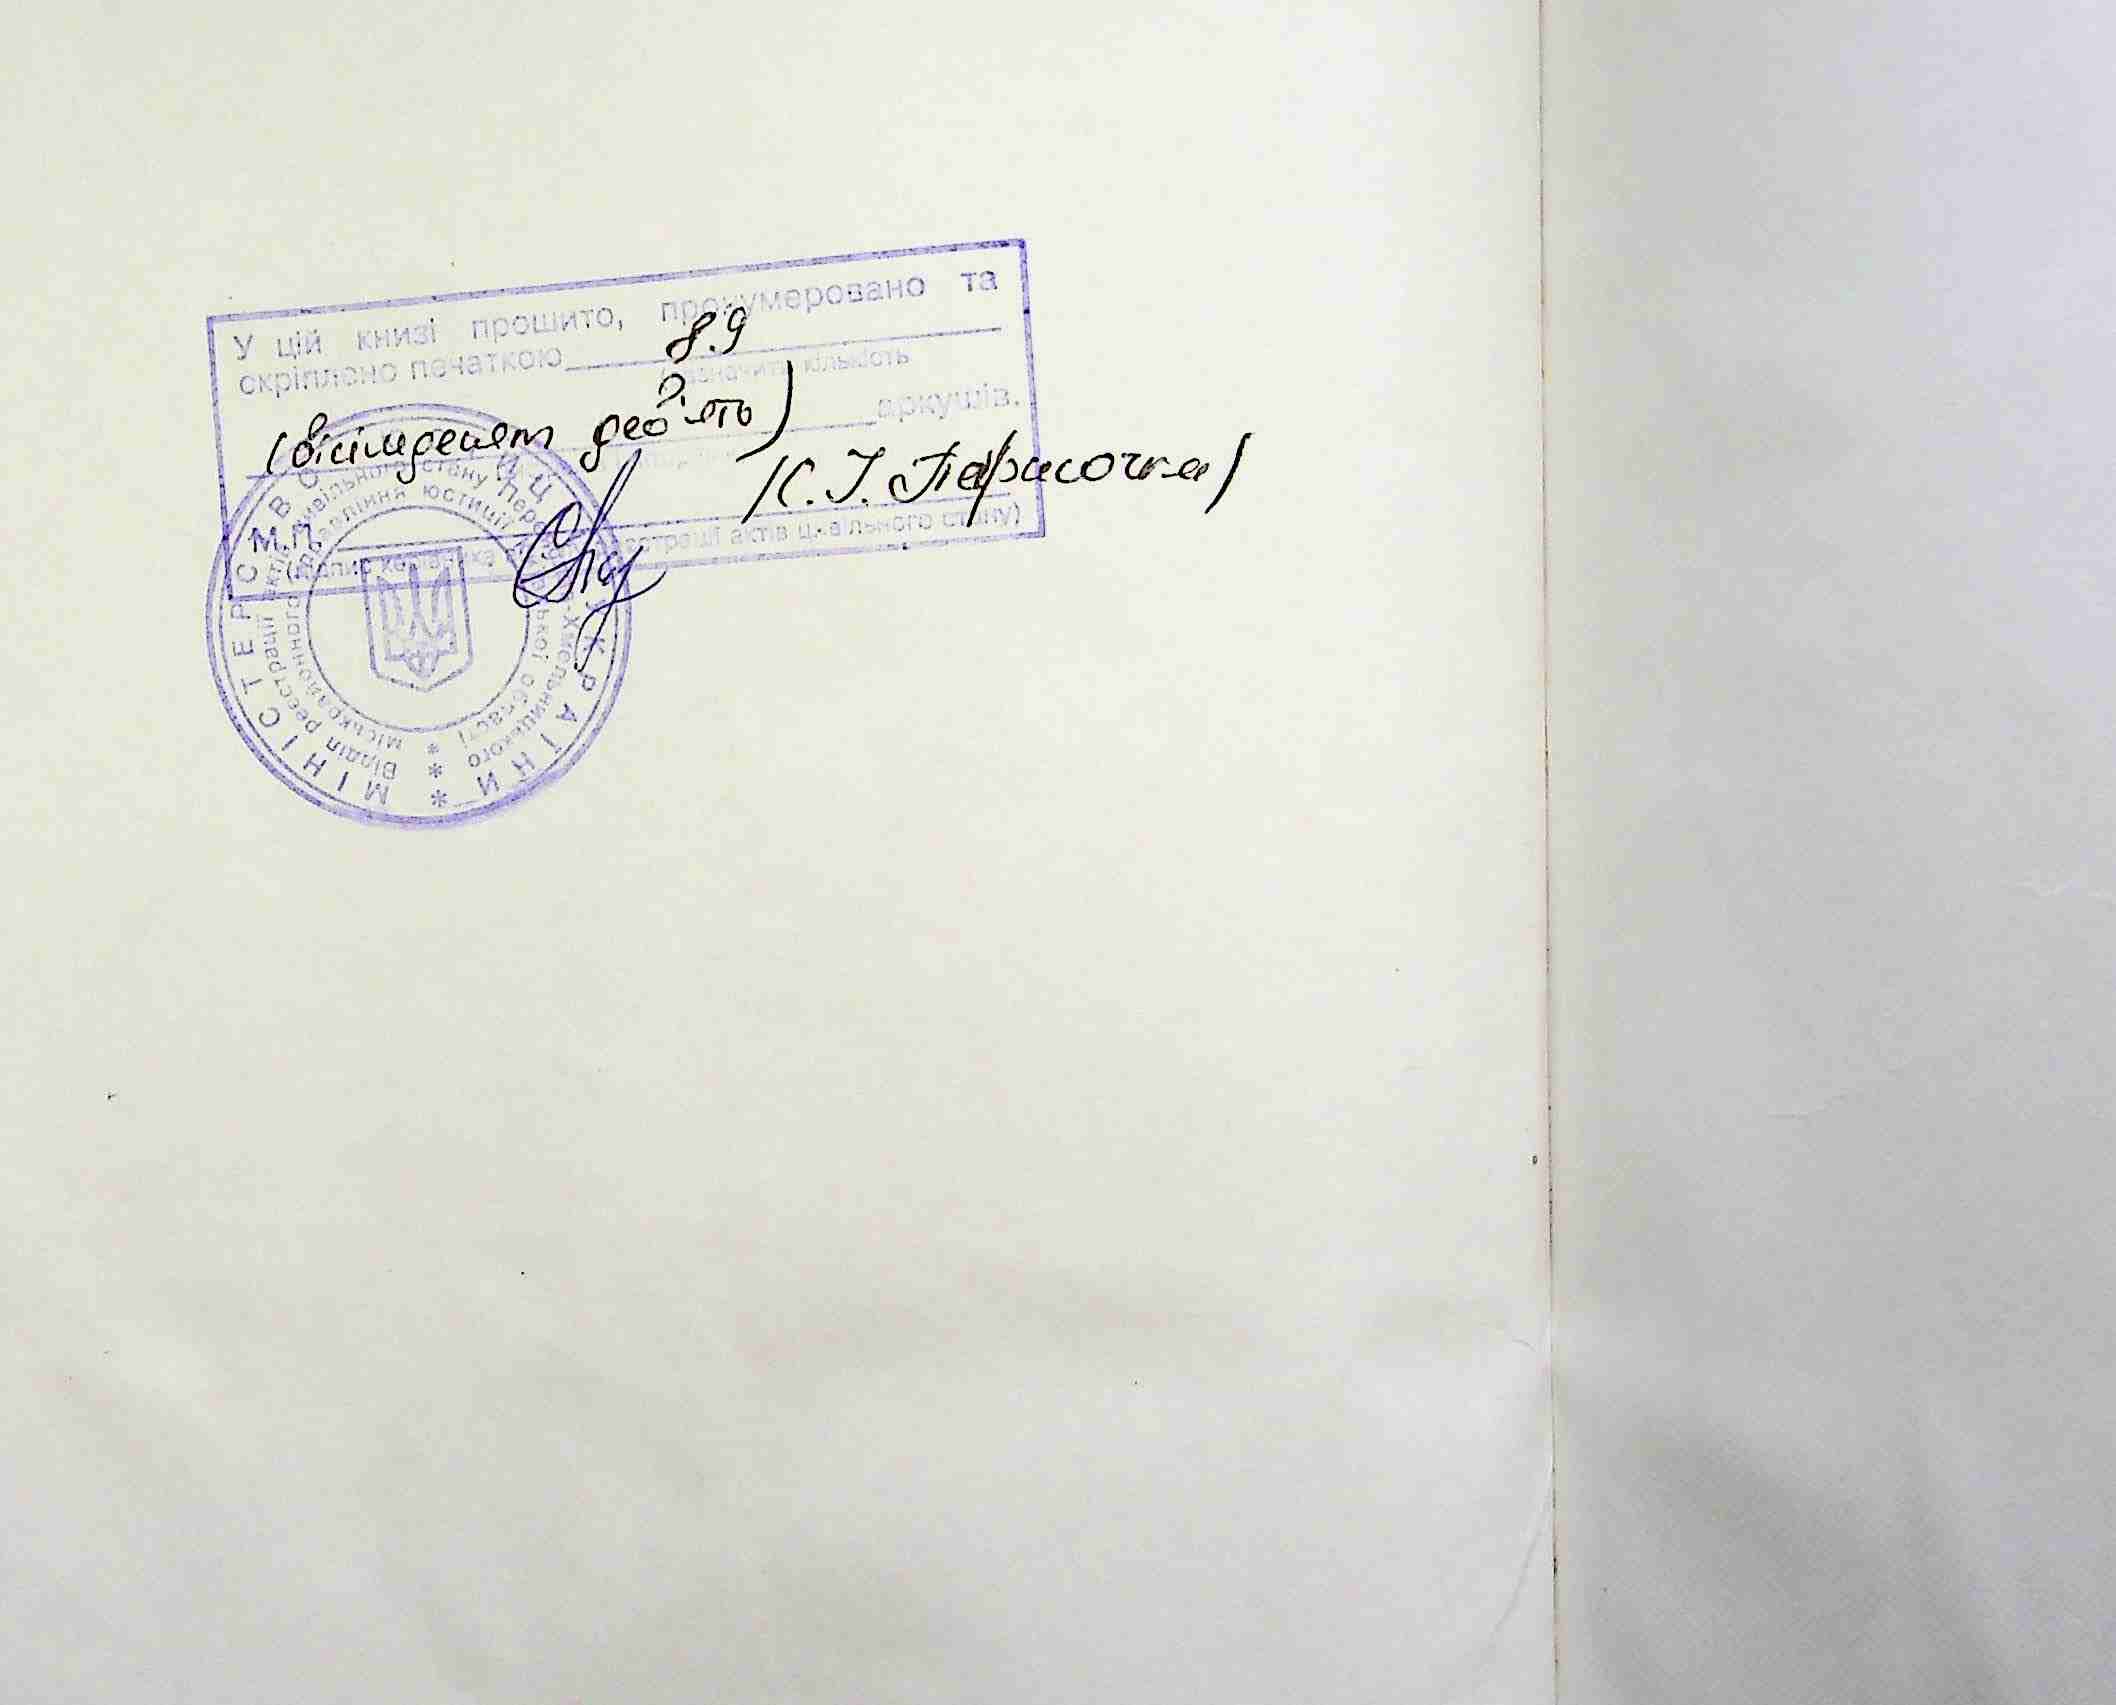 У цій книзі прошито, пронумеровано та
скріплено печаткою 89
(зазначити кількість
(вісімдесят дев'ять) аркушів.
К. І. Парасочка
М.П.
(підпис керівника реєстрації актів цивільного стану)
МІНІСТЕРСТВО ЮСТИЦІЇ УКРАЇНИ *
Відділ реєстрації актів цивільного стану Переяслав-Хмельницького *
міськрайонного управління юстиції Київської області *